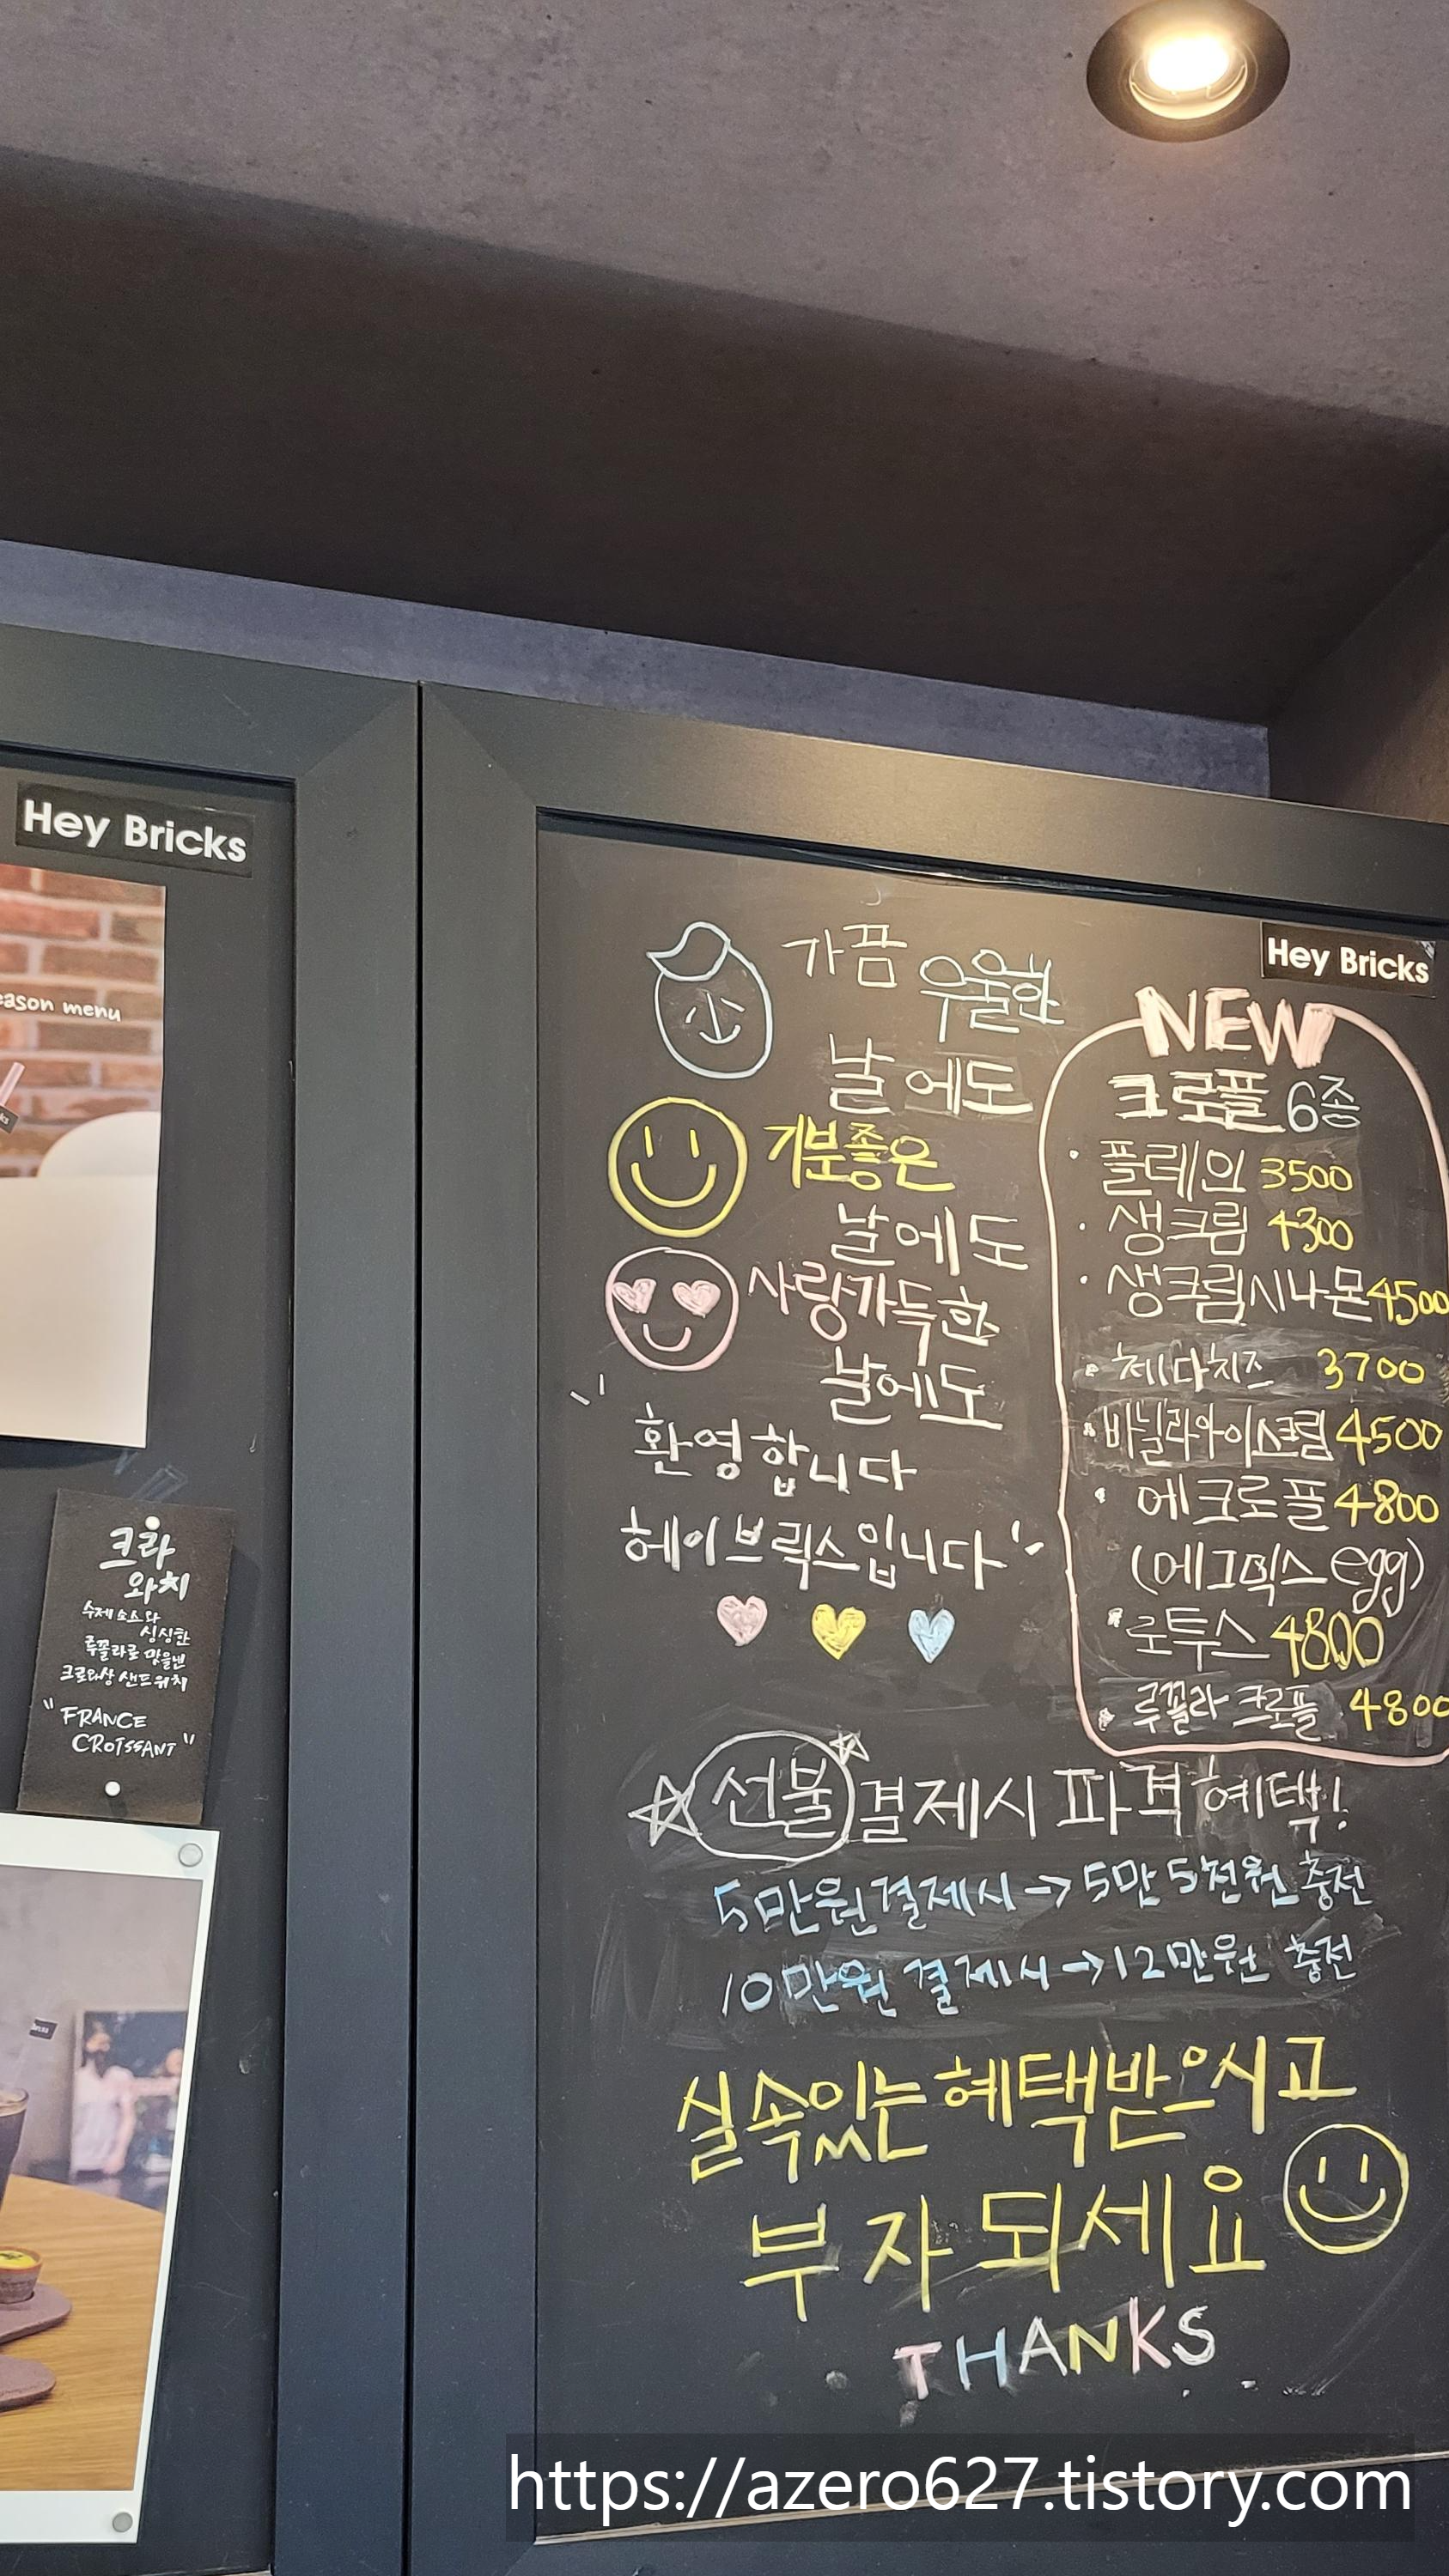 Hey Bricks
eason menu
크라
와치
수제 소스와
싱싱한
루꼴라로 맛을낸
크로와상 샌드위치
"FRANCE
CROISSANT"
Hey Bricks
가끔 우울한
날에도
기분좋은
날에도
사랑가득한
날에도
환영합니다
헤이브릭스입니다
NEW
크로플 6종
· 플레인 3500
· 생크림 4300
· 생크림시나몬 4500
· 체다치즈 3700
· 바닐라아이스크림 4500
· 에크로플 4800
(에그믹스 egg)
· 로투스 4800
· 루꼴라 크로플 4800
☆선불 결제시 파격 혜택!
5만원 결제시→5만5천원 충전
10만원 결제시→12만원 충전
실속있는 혜택받으시고
부자되세요
THANKS
https://azero627.tistory.com